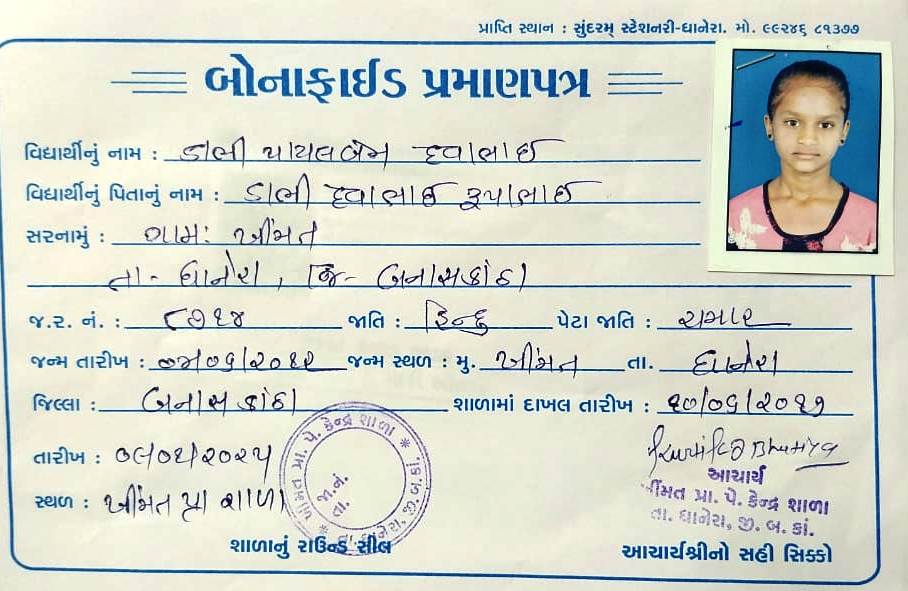 પ્રાપ્તિ સ્થાન : સુંદરમ્ સ્ટેશનરી-ધાનેરા. મો. ૯૯૨૪૬ ૮૧૩૭૭
બોનાફાઈડ પ્રમાણપત્ર
વિદ્યાર્થીનું નામ : ડાભી પાયલબેન દેવાભાઈ
વિદ્યાર્થીનું પિતાનું નામ : ડાભી દેવાભાઈ રૂપાભાઈ
સરનામું : ગામ: ખીંમત
તા- ધાનેરા, જિ- બનાસકાંઠા
જ.ર. નં. : ૮૭૧૪ જાતિ : હિન્દુ પેટા જાતિ : ચમાર
જન્મ તારીખ : ૦૫/૦૬/૨૦૧૨ જન્મ સ્થળ : મુ. ખીંમત તા. ધાનેરા
જિલ્લા : બનાસકાંઠા શાળામાં દાખલ તારીખ : ૧૦/૦૬/૨૦૧૭
તારીખ : ૦૯/૦૧/૨૦૨૫
સ્થળ : ખીંમત પ્રા શાળા
ખીંમત પ્રા. પે. કેન્દ્ર શાળા * તા. ધાનેરા, જી.બ.કાં. *
જા.નં.
તા.
આચાર્ય
ખીંમત પ્રા. પે. કેન્દ્ર શાળા
તા. ધાનેરા, જી. બ. કાં.
શાળાનું રાઉન્ડ સીલ
આચાર્યશ્રીનો સહી સિક્કો